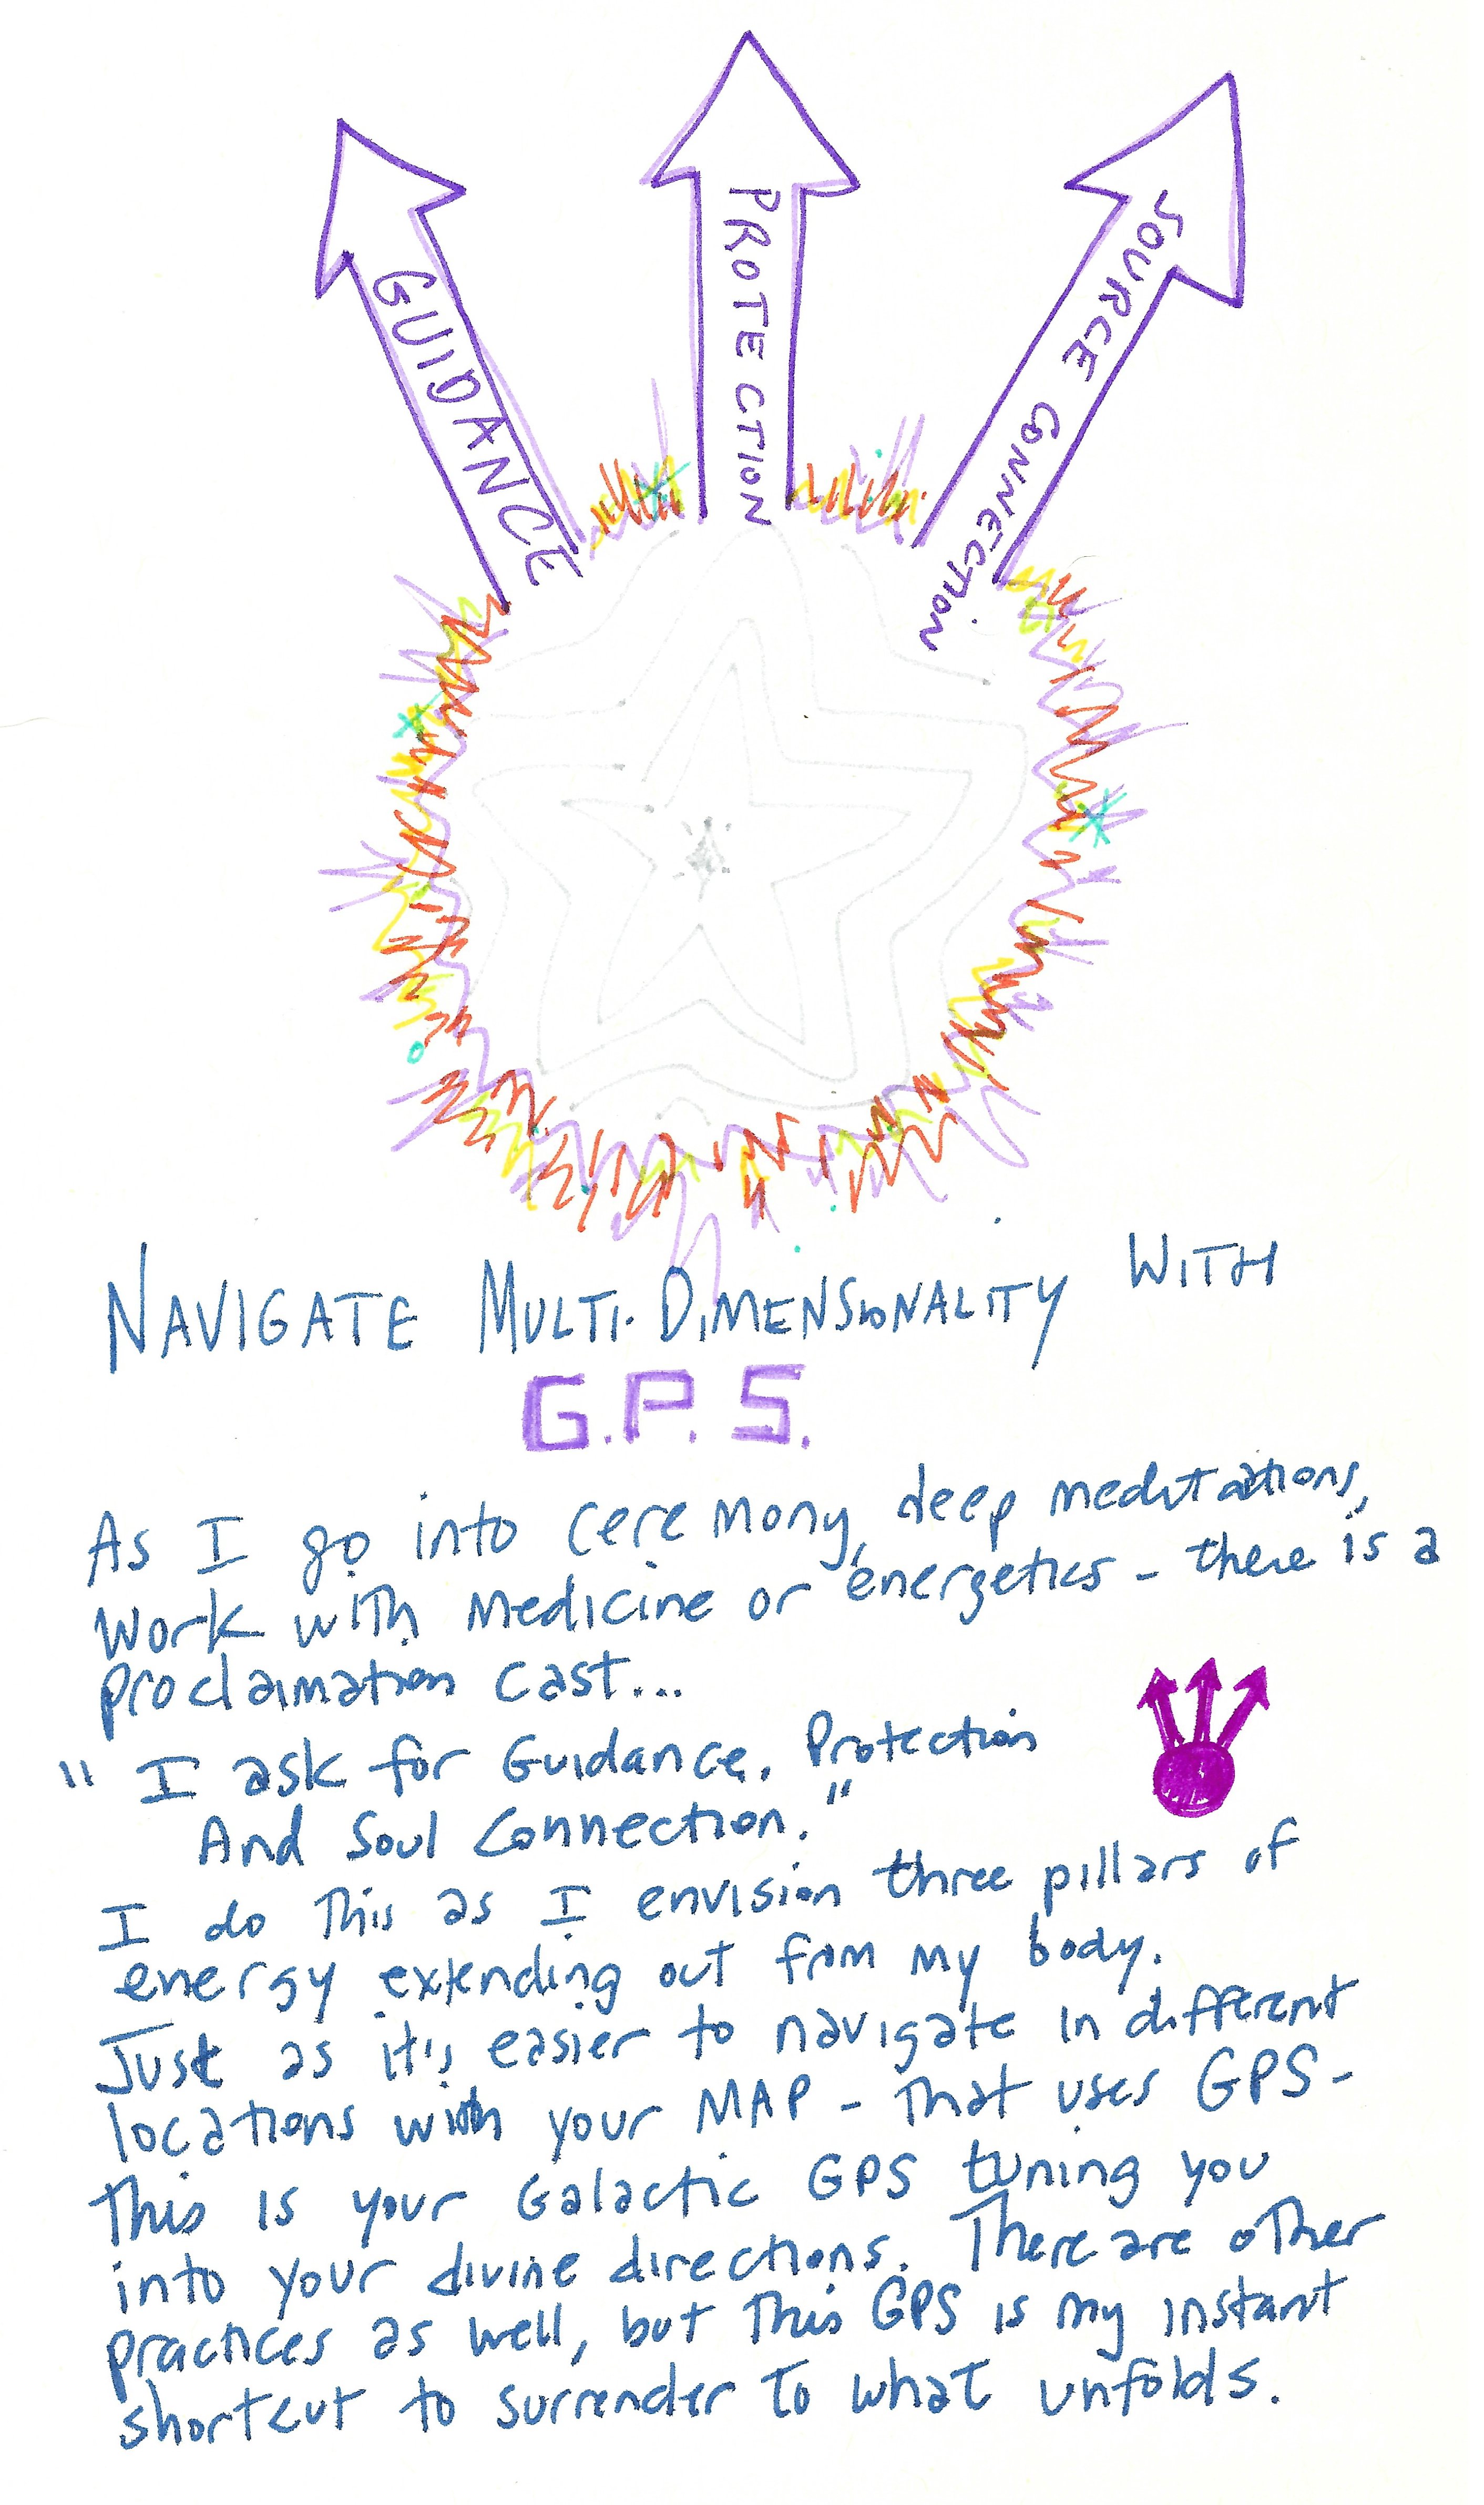 GUIDANCE
PROTECTION
SOURCE CONNECTION
NAVIGATE MULTI-DIMENSIONALITY WITH
G.P.S.
As I go into ceremony, deep meditations,
work with medicine or energetics - there is a
proclamation cast...
" I ask for Guidance, Protection
And Soul Connection."
I do this as I envision three pillars of
energy extending out from my body.
Just as it's easier to navigate in different
locations with your MAP - that uses GPS -
this is your Galactic GPS tuning you
into your divine directions. There are other
practices as well, but this GPS is my instant
shortcut to surrender to what unfolds.